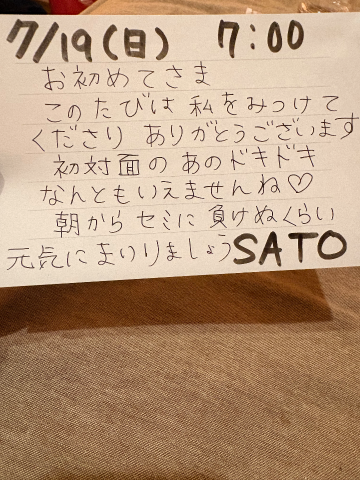 7/19(日) 7:00
お初めてさま
このたびは 私をみつけて
くださり ありがとうございます
初対面の あのドキドキ
なんともいえませんね♡
朝から セミに 負けぬくらい
元気に まいりましょう SATO